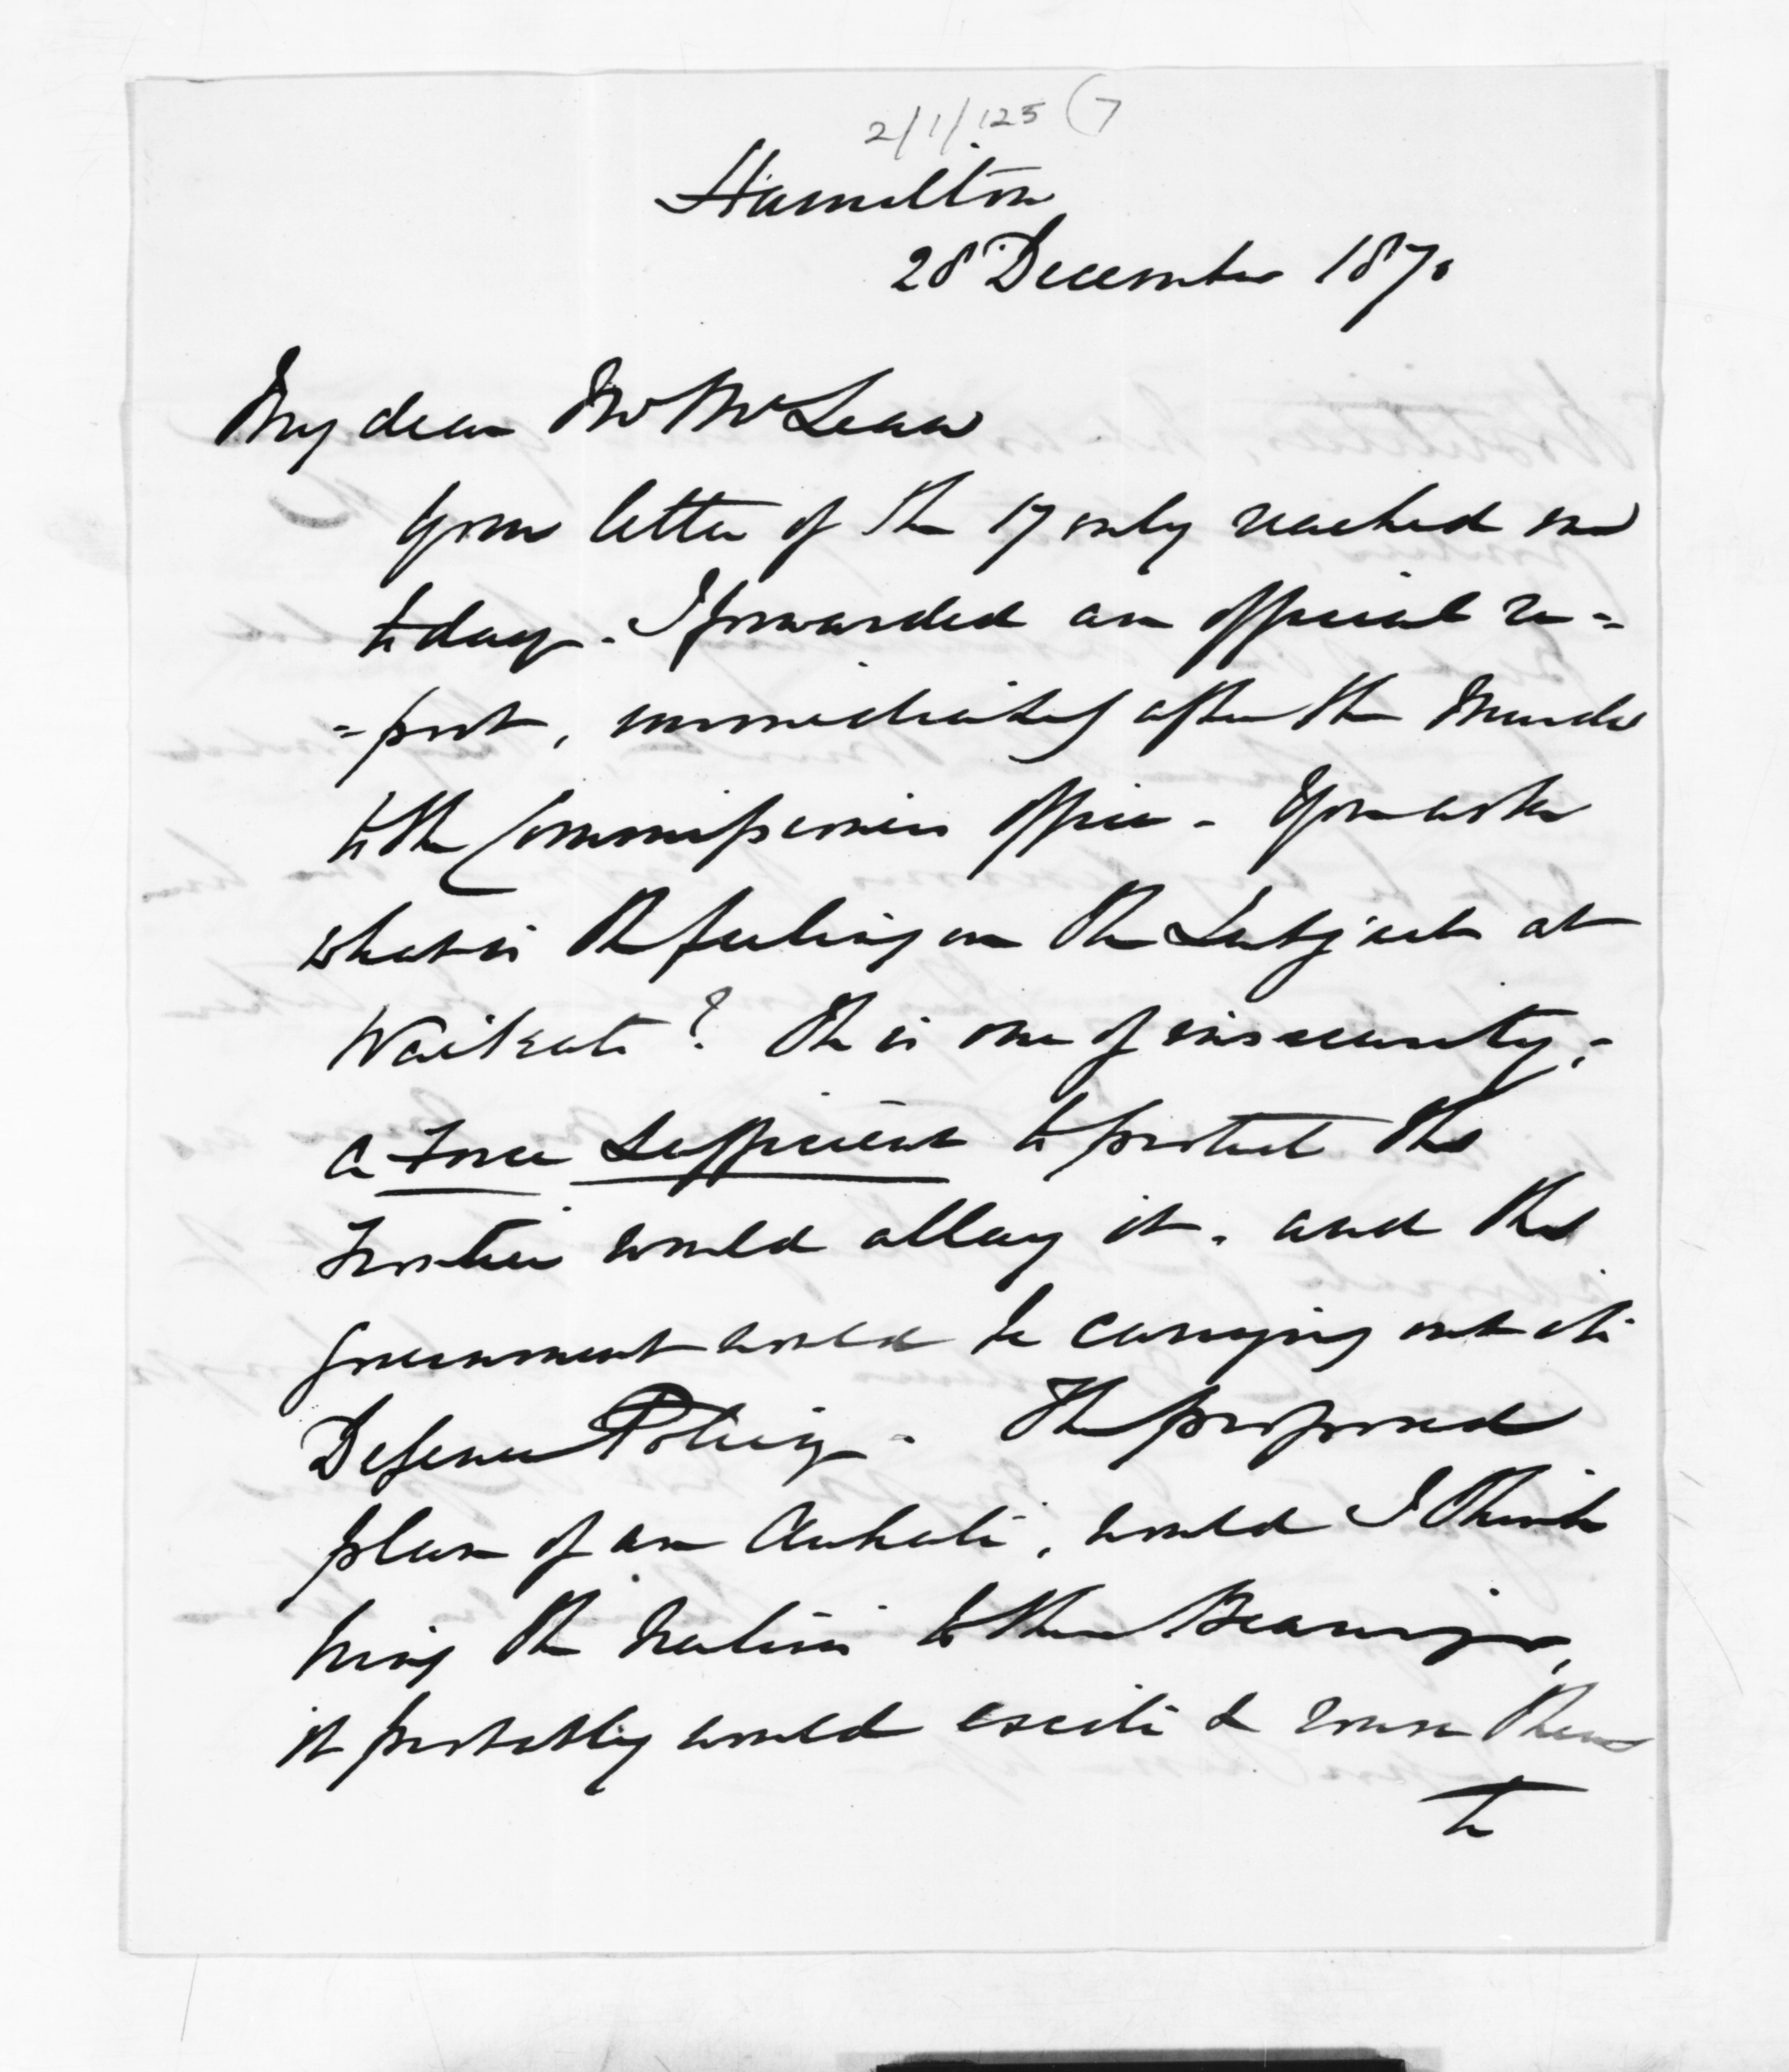 2/1/125 (7
Hamilton
28 December 1870
My dear Mr McLean
Your letter of the 17 only reached me
today. I forwarded an official re=
=port, immediately after the Murder
to the Commissioners office. You ask
what is the feeling on the Subject at
Waikato? The is one of insecurity,
a Force Sufficient to protect the
Frontier would allay it. and the
Government would be carrying out its
Defence Policy. The proposed
plan of an Aukati, would I think
bring the Natives to their Bearings,
it probably would excite & rouse them
to